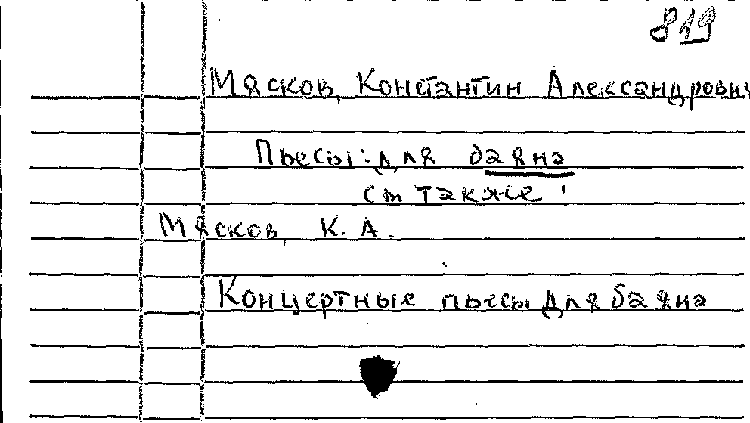 819
Мясков, Константин Александрович
Пьесы: для баяна
см также:
Мясков, К. А.
Концертные пьесы для баяна